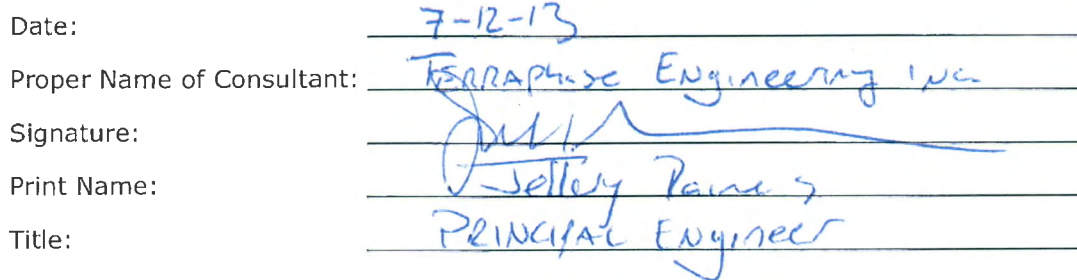 Date: 7-12-13
Proper Name of Consultant: TERRAphase Engineering Inc
Signature:
Print Name: Jeffery
Title: PRINCIPAL Engineer